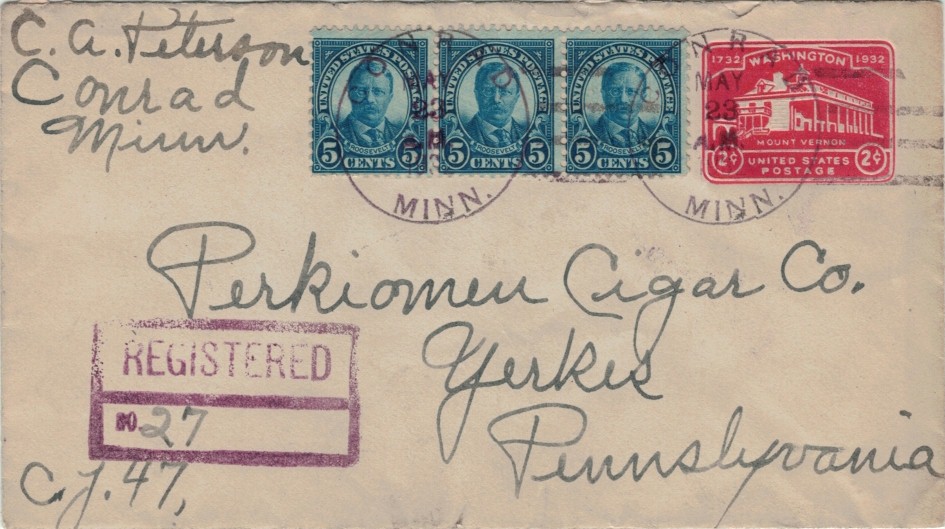 C. A. Peterson
Conrad
Minn.
UNITED STATES POSTAGE
ROOSEVELT
5 CENTS 5
UNITED STATES POSTAGE
ROOSEVELT
5 CENTS 5
UNITED STATES POSTAGE
ROOSEVELT
5 CENTS 5
1732 WASHINGTON 1932
MOUNT VERNON
2¢ UNITED STATES 2¢
POSTAGE
23
MINN.
MAY
23
A.M.
MINN.
Perkiomen Cigar Co.
Yerkes
Pennsylvania
REGISTERED
NO. 27
C. J. 47,